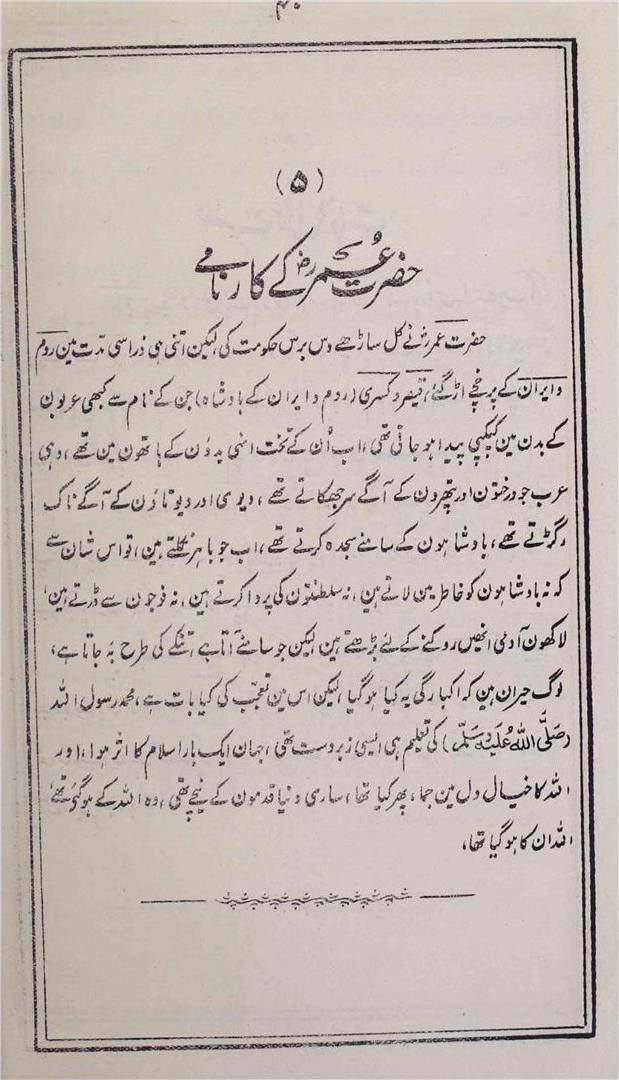 ۴۰
(۵)
حضرت عمرؓ کے کارنامے
حضرت عمرؓ نے کل ساڑھے دس برس حکومت کی لیکن اتنی ہی ذرا سی مدّت مین روم
و ایران کے پرخچے اڑ گئے، قیصر و کسریٰ (روم و ایران کے بادشاہ) جن کے نام سے کبھی عربون
کے بدن مین کپکپی پیدا ہو جاتی تھی، اب اُن کے تخت انہی بدوُن کے ہاتھون مین تھے، وہی
عرب جو درختون اور پتھرون کے آگے سر جھکاتے تھے، دیوی اور دیوتاؤن کے آگے ناک
رگڑتے تھے، بادشاہون کے سامنے سجدہ کرتے تھے، اب جو باہر نکلتے ہین، تو اس شان سے
کہ نہ بادشاہون کو خاطر مین لاتے ہین، نہ سلطنتون کی پروا کرتے ہین، نہ فوجون سے ڈرتے ہین،
لاکھون آدمی انھین روکنے کے لئے بڑھتے ہین لیکن جو سامنے آتا ہے، تنکے کی طرح بہ جاتا ہے،
لوگ حیران ہین کہ اکبارگی یہ کیا ہو گیا، لیکن اس مین تعجّب کی کیا بات ہے، محمد رسول اللہ
(صَلَّی اللہُ عَلَیْہِ وَسَلَّم) کی تعلیم ہی ایسی زبردست تھی، جہان ایک بار اسلام کا اثر ہوا، اور
اللہ کا خیال دل مین جما، پھر کیا تھا، ساری دنیا قدمون کے نیچے تھی، وہ اللہ کے ہو گئے تھے،
اللہ ان کا ہو گیا تھا،